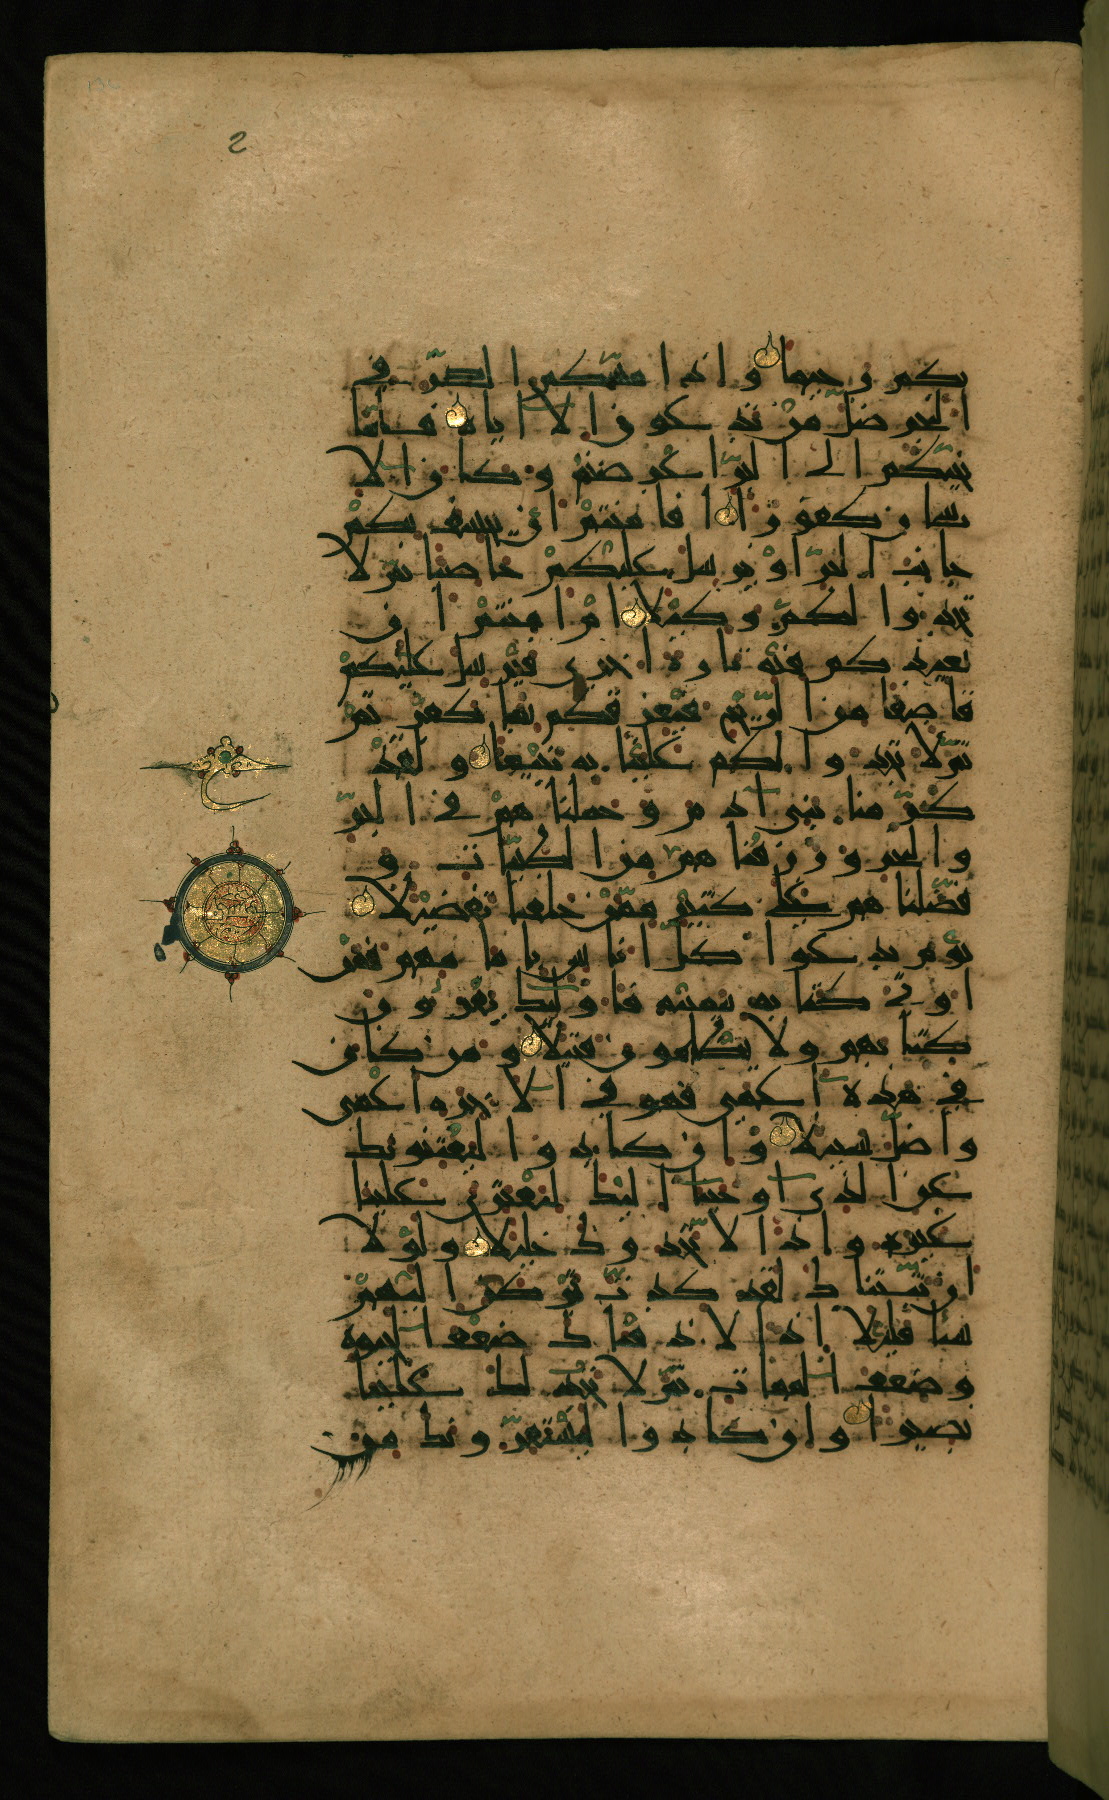 بكم رحيما واذا مسكم الضر في
البحر ضل من تدعون الا اياه فلما
نجيكم الى البر اعرضتم وكان الا
نسان كفورا افامنتم ان يخسف بكم
جانب البر او يرسل عليكم حاصبا ثم لا
تجدوا لكم وكيلا ام امنتم ان
يعيدكم فيه تارة اخرى فيرسل عليكم
قاصفا من الريح فيغرقكم بما كفرتم
ثم لا تجدوا لكم علينا به تبيعا ولقد
كرمنا بني ادم وحملناهم في البر
والبحر ورزقناهم من الطيبات و
فضلناهم على كثير ممن خلقنا تفضيلا
يوم ندعوا كل اناس بامامهم فمن
اوتي كتابه بيمينه فاولئك يقرؤن
كتابهم ولا يظلمون فتيلا ومن كان
في هذه اعمى فهو في الاخرة اعمى
واضل سبيلا وان كادوا ليفتنونك
عن الذي اوحينا اليك لتفتري علينا
غيره واذا لاتخذوك خليلا ولولا
ان ثبتناك لقد كدت تركن اليهم
شيئا قليلا اذا لاذقناك ضعف الحيوة
وضعف الممات ثم لا تجد لك علينا
نصيرا وان كادوا ليستفزونك من